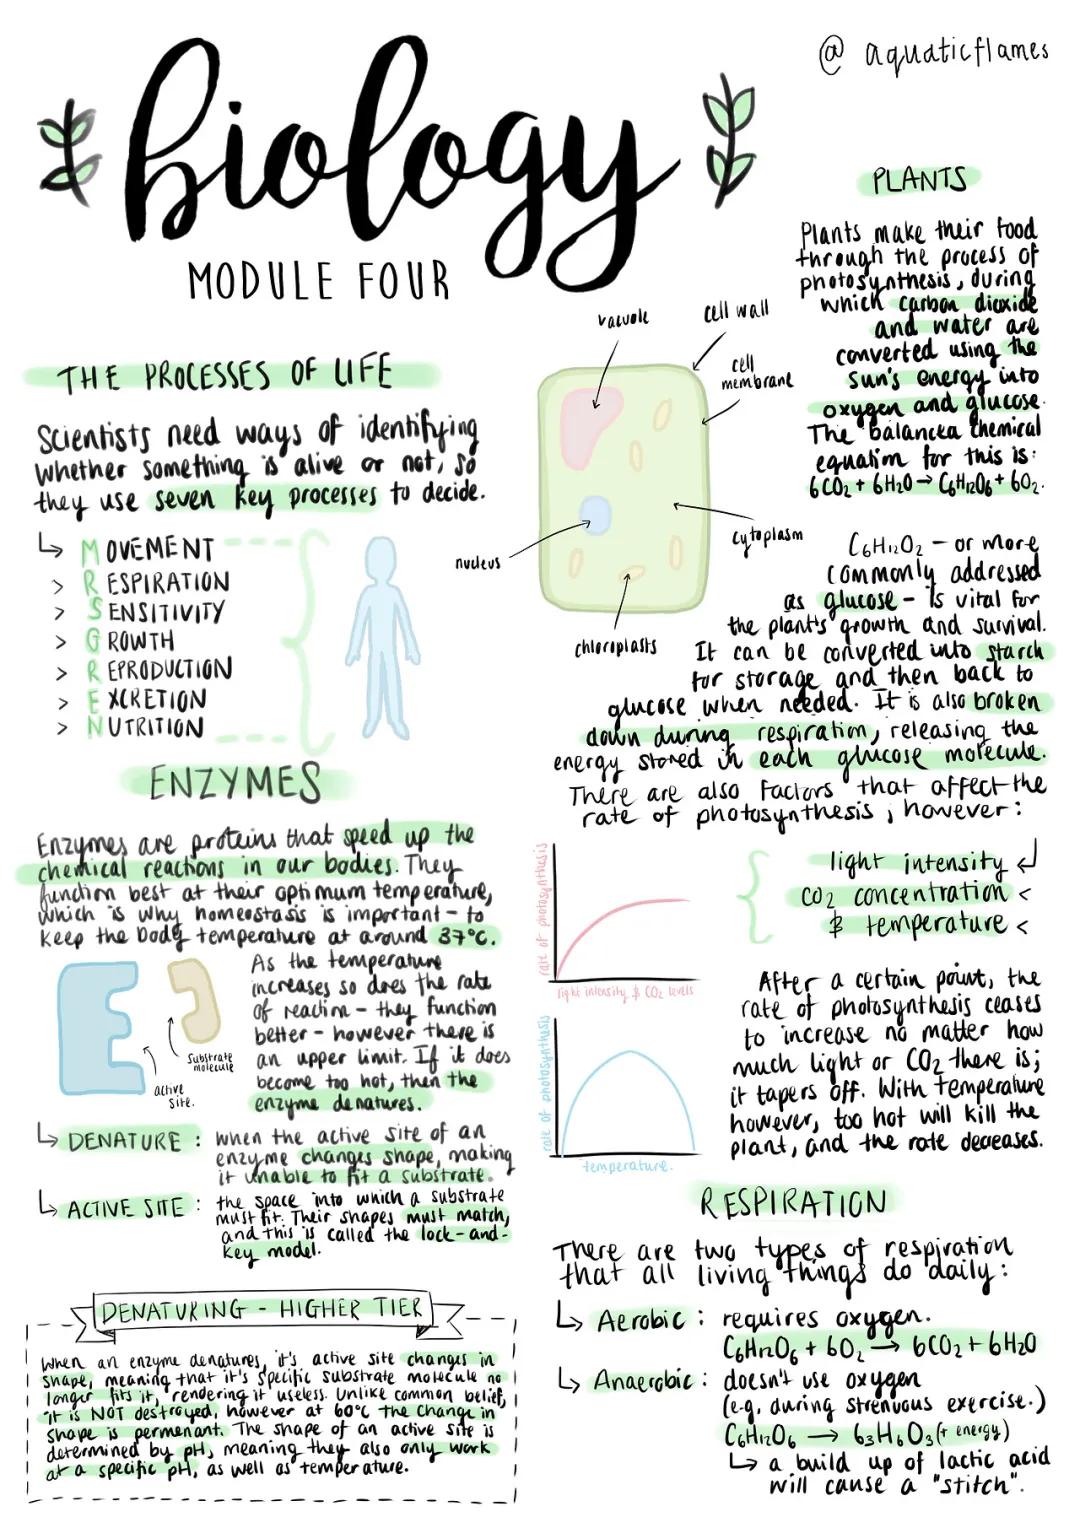 @ aquaticflames
biology
MODULE FOUR
THE PROCESSES OF LIFE
Scientists need ways of identifying
whether something is alive or not, so
they use seven key processes to decide.
↳ MOVEMENT
> RESPIRATION
> SENSITIVITY
> GROWTH
> REPRODUCTION
> EXCRETION
> NUTRITION
ENZYMES
Enzymes are proteins that speed up the
chemical reactions in our bodies. They
function best at their optimum temperature,
which is why homeostasis is important - to
keep the body temperature at around 37°C.
As the temperature
increases so does the rate
of reaction - they function
better - however there is
an upper limit. If it does
become too hot, then the
enzyme denatures.
Substrate
molecule
active
site.
↳ DENATURE : when the active site of an
enzyme changes shape, making
it unable to fit a substrate.
↳ ACTIVE SITE : the space into which a substrate
must fit. Their shapes must match,
and this is called the lock-and-
key model.
DENATURING - HIGHER TIER
When an enzyme denatures, it's active site changes in
shape, meaning that it's specific substrate molecule no
longer fits it, rendering it useless. Unlike common belief,
it is NOT destroyed, however at 60°C the change in
shape is permenant. The shape of an active site is
determined by pH, meaning they also only work
at a specific pH, as well as temperature.
vacuole
cell wall
cell
membrane
nucleus
cytoplasm
chloroplasts
PLANTS
Plants make their food
through the process of
photosynthesis, during
which carbon dioxide
and water are
converted using the
sun's energy into
oxygen and glucose.
The balanced chemical
equation for this is:
6CO₂ + 6H₂O → C₆H₁₂O₆ + 6O₂.
C₆H₁₂O₂ - or more
commonly addressed
as glucose - is vital for
the plant's growth and survival.
It can be converted into starch
for storage and then back to
glucose when needed. It is also broken
down during respiration, releasing the
energy stored in each glucose molecule.
There are also factors that affect the
rate of photosynthesis, however:
light intensity ↲
CO₂ concentration <
& temperature <
rate of photosynthesis
light intensity & CO₂ levels
rate of photosynthesis
temperature.
After a certain point, the
rate of photosynthesis ceases
to increase no matter how
much light or CO₂ there is;
it tapers off. With temperature
however, too hot will kill the
plant, and the rate decreases.
RESPIRATION
There are two types of respiration
that all living things do daily:
↳ Aerobic : requires oxygen.
C₆H₁₂O₆ + 6O₂ → 6CO₂ + 6H₂O
↳ Anaerobic : doesn't use oxygen
(e.g. during strenuous exercise.)
C₆H₁₂O₆ → 6₃H₆O₃ (+ energy)
↳ a build up of lactic acid
will cause a "stitch".